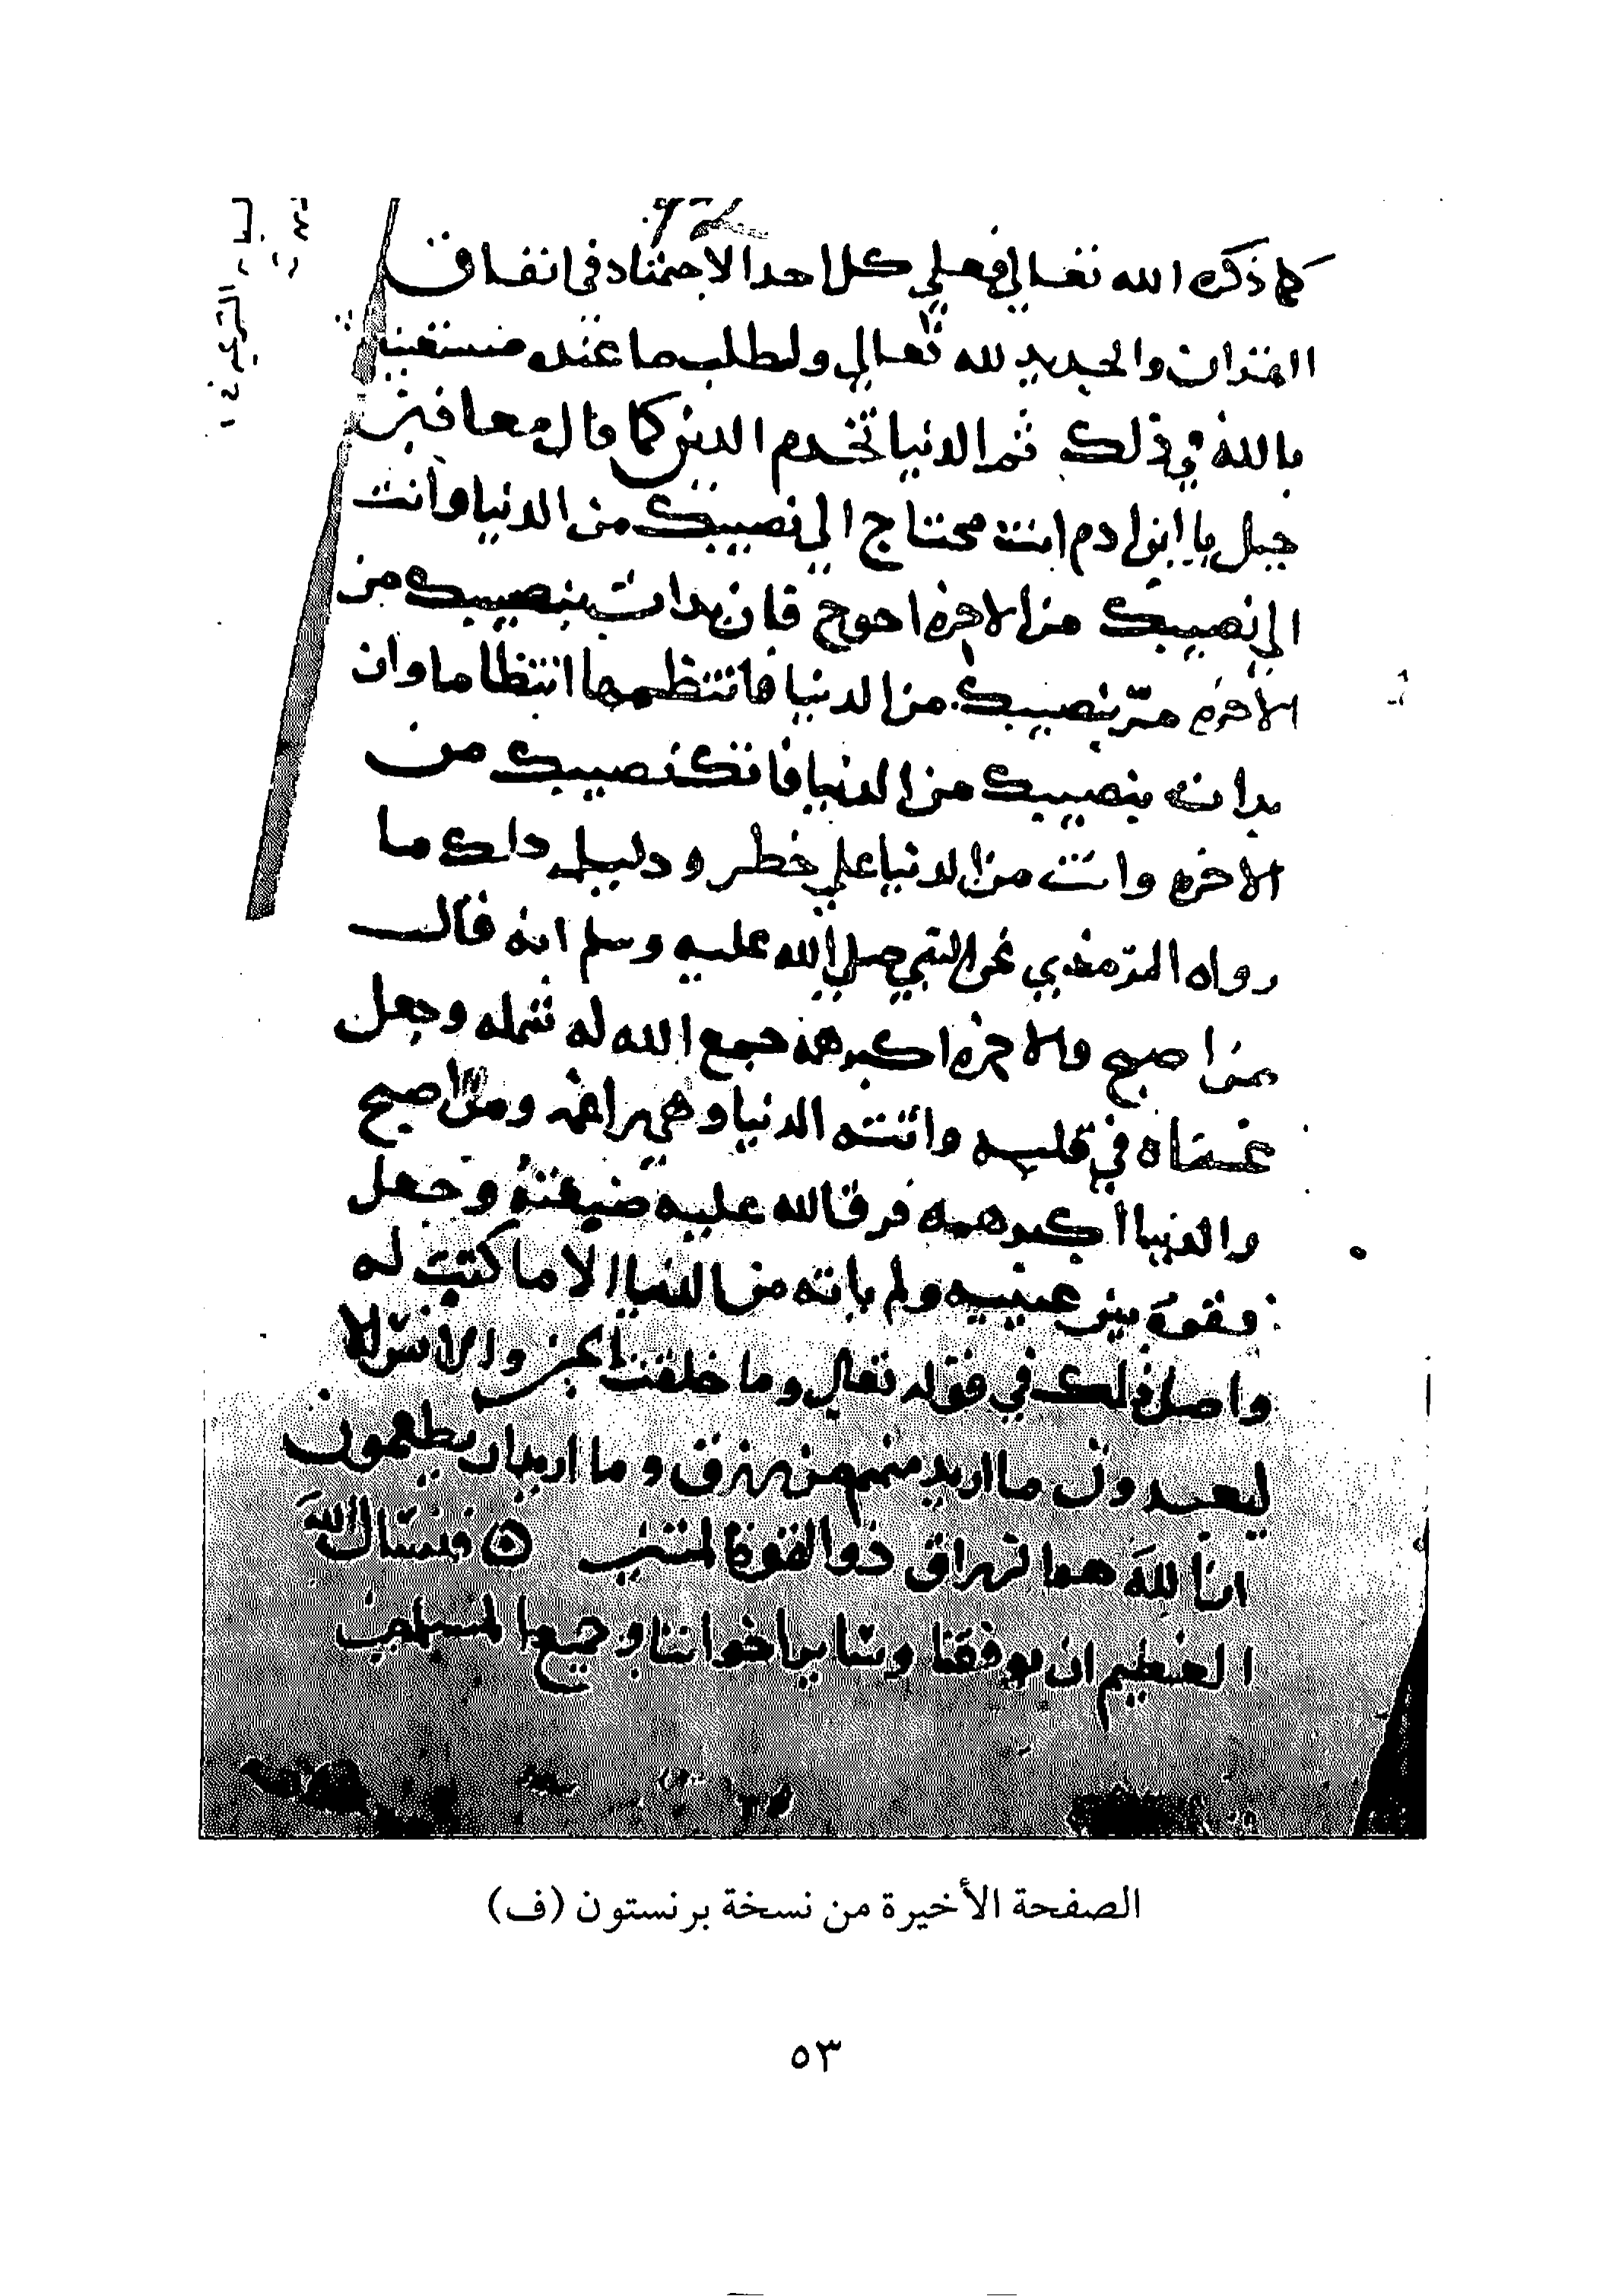 كما ذكره الله تعالى فعلي كل احد الاجتهاد في انفاق
القران والحديد لله تعالى ولطلب ما عنده مستعينا
بالله في ذلك ثم الدنيا تخدم الدين كما قال معاذ بن
جبل يا ابن ادم انت محتاج الى نصيبك من الدنيا وانت
الى نصيبك من الاخرة احوج فان بدات بنصيبك من
الاخرة مر بنصيبك من الدنيا فانتظمها انتظاما وان
بدات بنصيبك من الدنيا فاتك نصيبك من
الاخرة وانت من الدنيا علي خطر ودليل ذلك ما
رواه الترمذي عن النبي صلى الله عليه وسلم انه قال
من اصبح والاخرة اكبر همه جمع الله له شمله وجعل
غناه في قلبه واتته الدنيا وهي راغمة ومن اصبح
والدنيا أكبر همه فرق الله عليه ضيعته وجعل
فقره بين عينيه ولم ياته من الدنيا الا ما كتب له
واصل ذلك في قوله تعالى وما خلقت الجن والانس الا
ليعبدون ما اريد منهم من رزق وما اريد ان يطعمون
ان الله هو الرزاق ذو القوة المتين ه فنسال الله
العظيم ان يوفقنا وساير اخواننا وجميع المسلمين
الصفحة الأخيرة من نسخة برنستون (ف)
٥٣